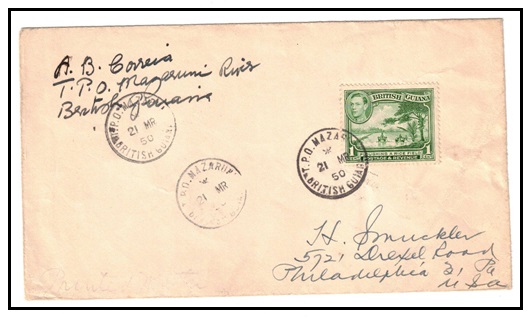 A. B. Correia
T.P.O. Mazaruni River
British Guiana
T.P.O. MAZARUNI
21 MR
50
BRITISH GUIANA
T.P.O. MAZARUNI
21 MR
T.P.O. MAZARUNI
21 MR
50
BRITISH GUIANA
BRITISH GUIANA
1
POSTAGE & REVENUE
H. Smuckler
5721 Drexel Road
Philadelphia 31, Pa
USA